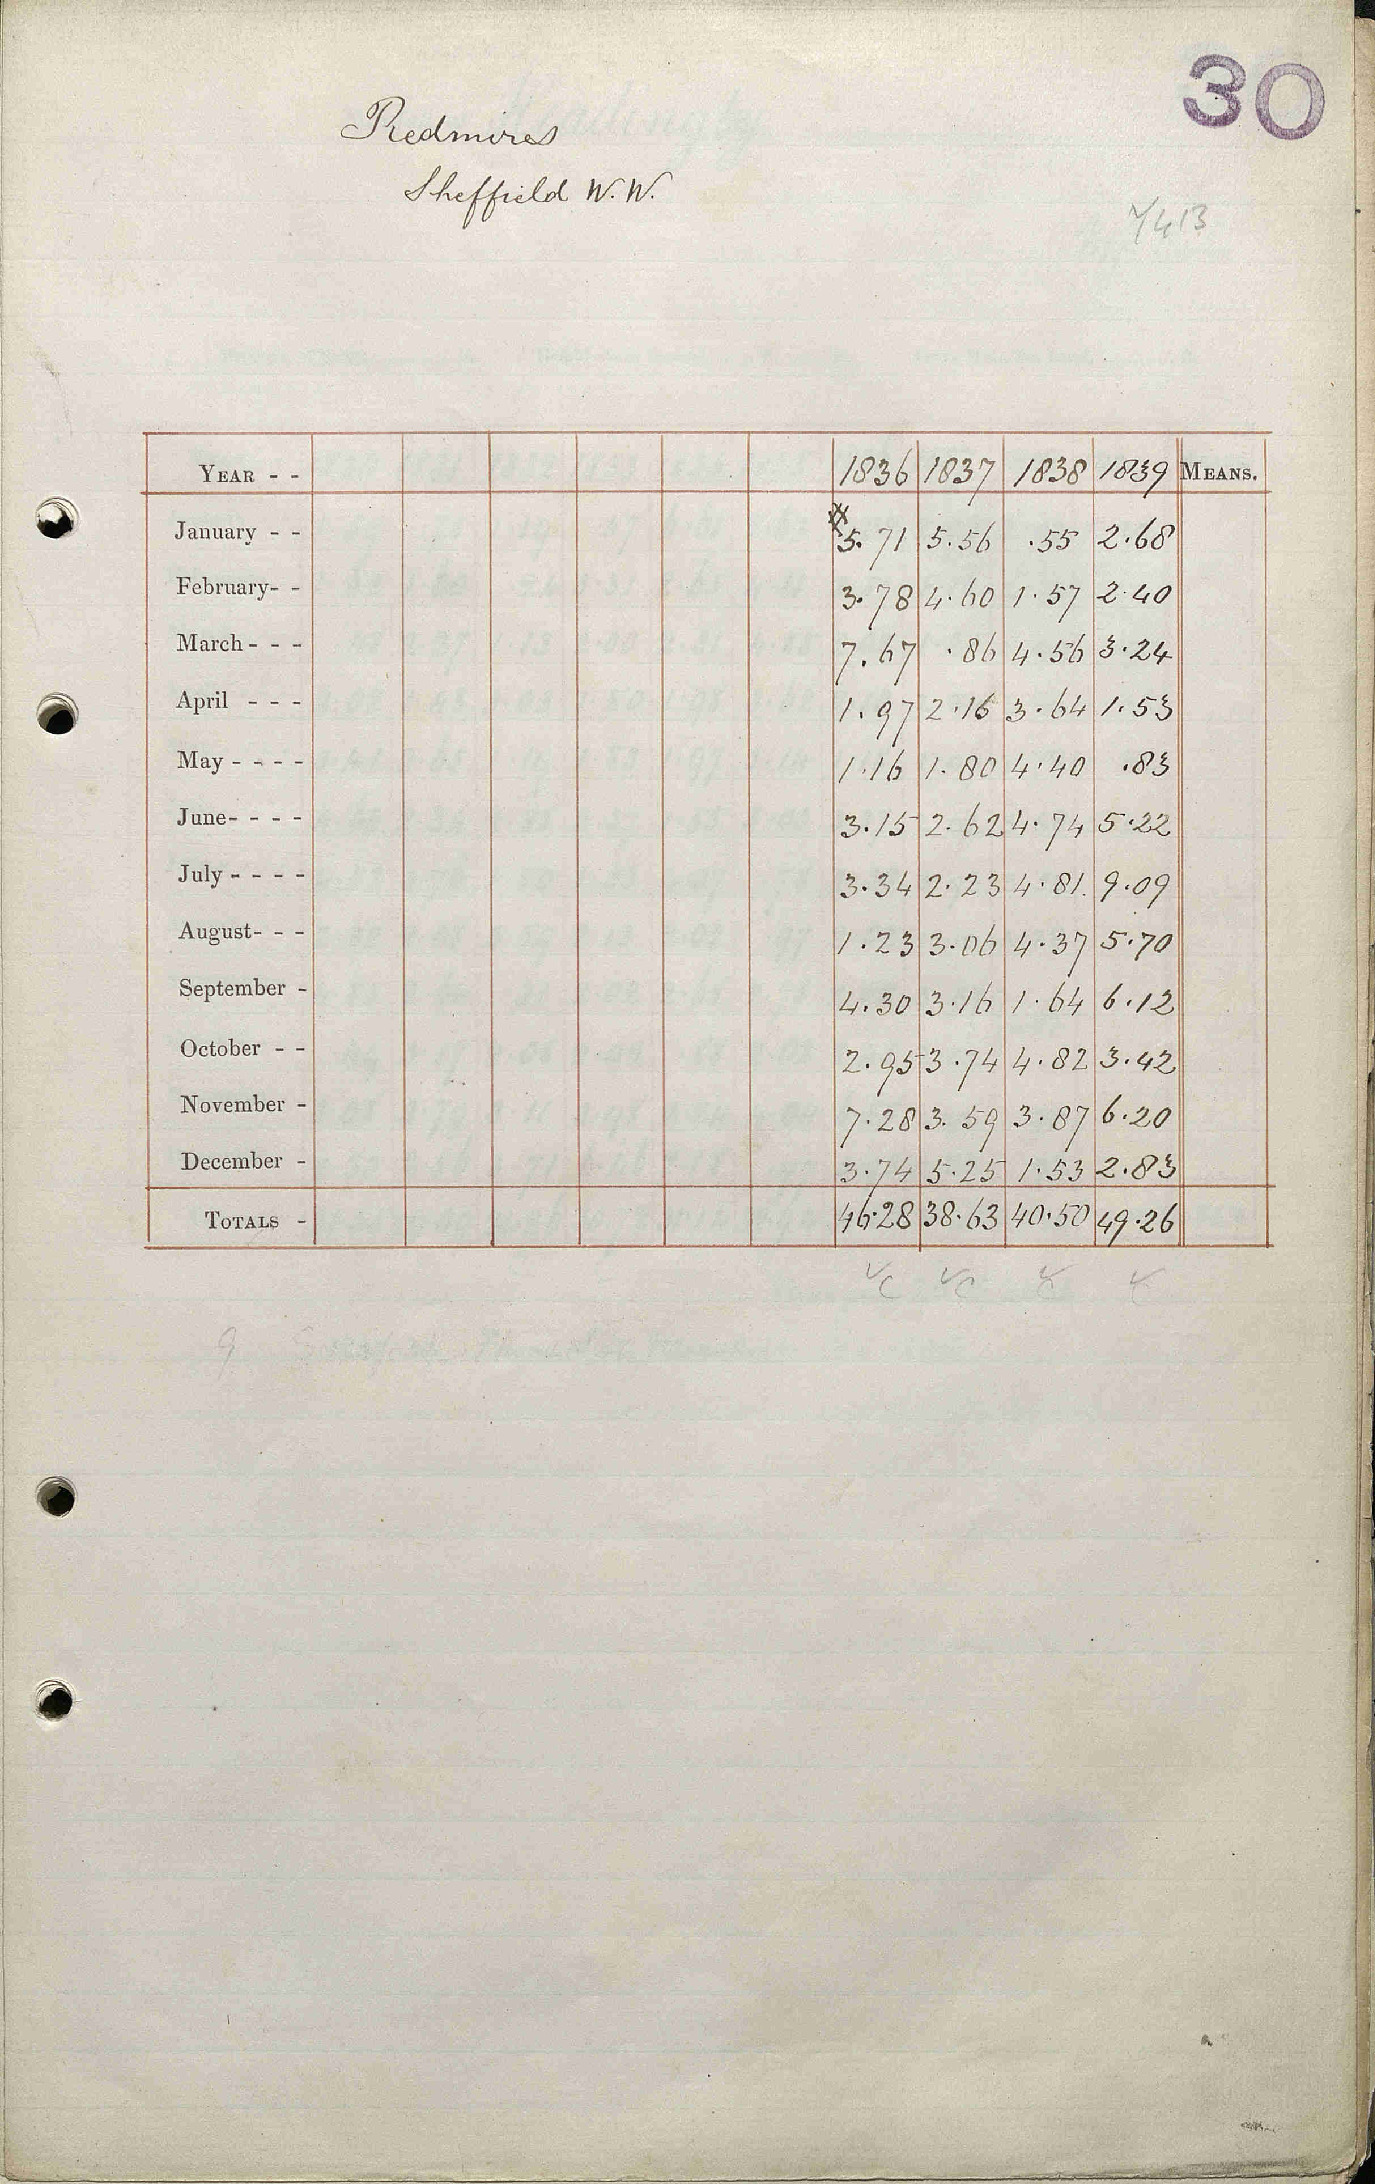 30
Redmires
Sheffield W. W.
7/413
YEAR - - 1836 1837 1838 1839 MEANS.
January - - 5.71 5.56 .55 2.68
February- - 3.78 4.60 1.57 2.40
March- - - 7.67 .86 4.56 3.24
April - - - 1.97 2.16 3.64 1.53
May - - - - 1.16 1.80 4.40 .83
June- - - - 3.15 2.62 4.74 5.22
July - - - - 3.34 2.23 4.81 9.09
August- - - 1.23 3.06 4.37 5.70
September - 4.30 3.16 1.64 6.12
October - - 2.95 3.74 4.82 3.42
November - 7.28 3.59 3.87 6.20
December - 3.74 5.25 1.53 2.83
TOTALS - 46.28 38.63 40.50 49.26